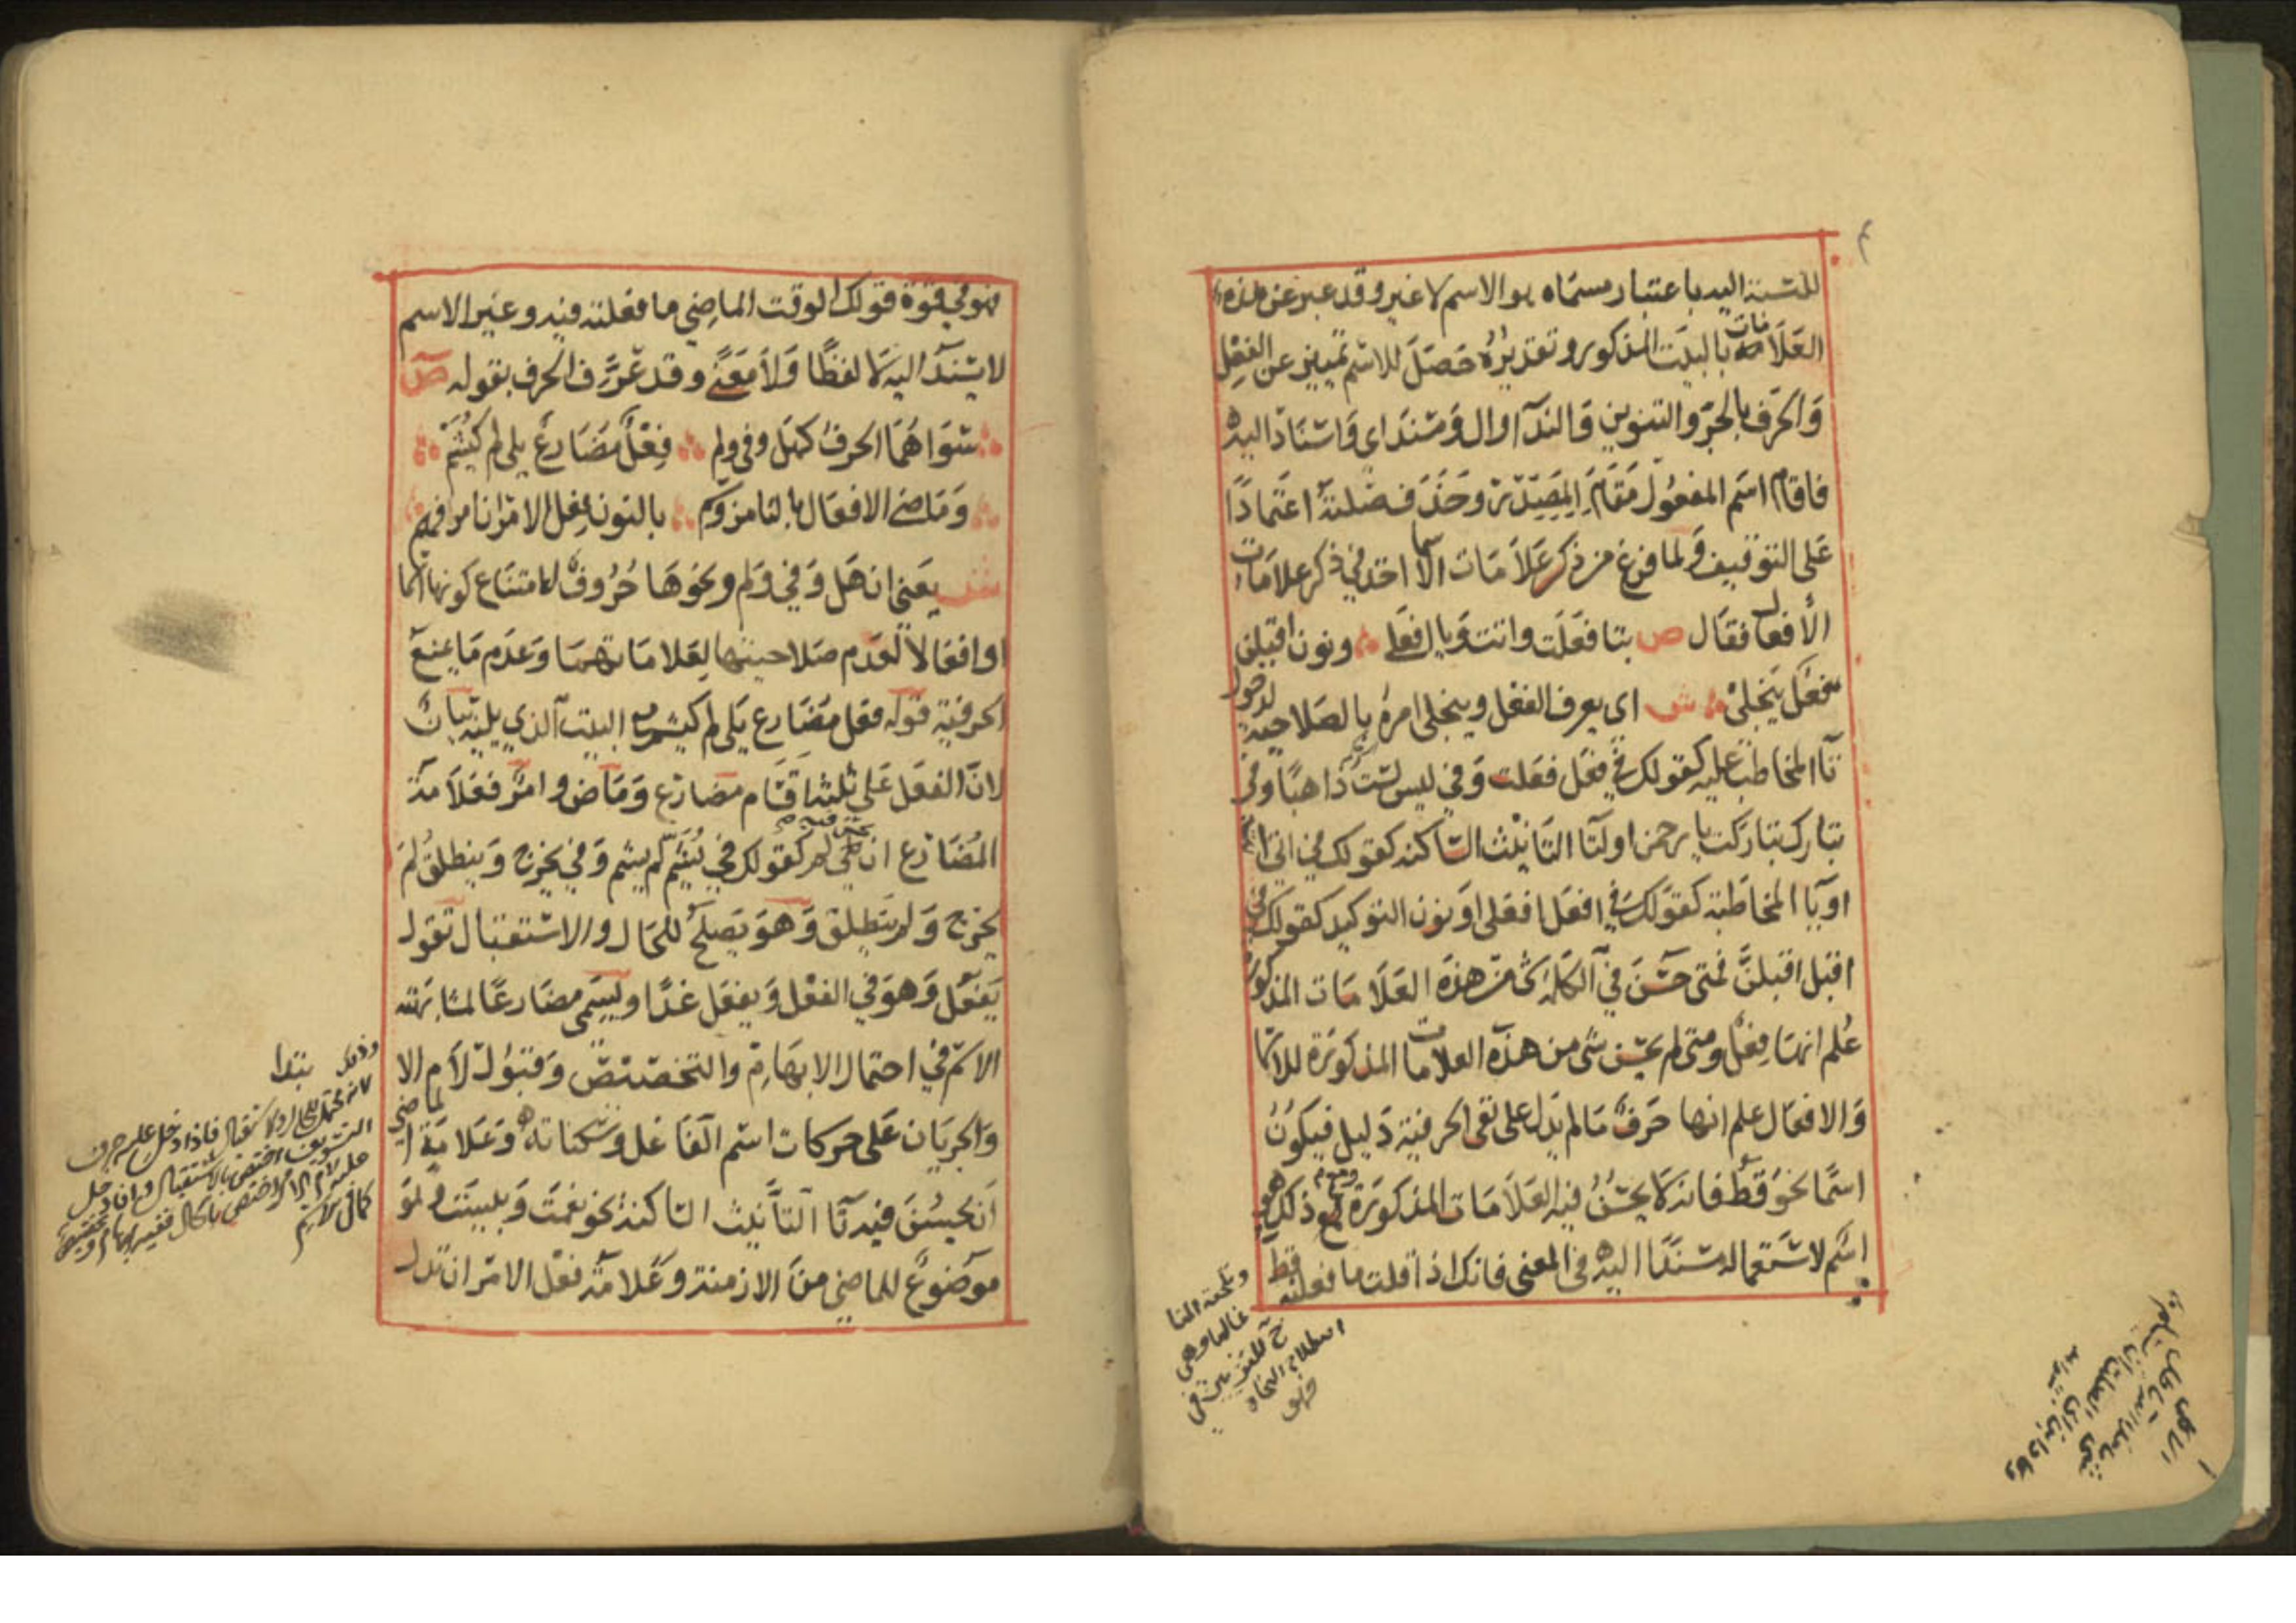 للمسند اليه باعتبار مسماه هو الاسم لا غير وقد عبر عن هذه
العلامات بالبيت المذكور وتقديره حصل للاسم تمييز عن الفعل
والحرف بالجر والتنوين والندآ وال ومسند اى واسناد اليه
فاقام اسم المفعول مقام المصدر وحذف صلته اعتمادا
على التوقيف ولما فرغ من ذكر علامات الاسما اخذ في ذكر علامات
الافعال فقال ص بتا فعلت واتت ويا افعلي ونون اقبلن
فعل ينجلي ش اى يعرف الفعل وينجلى امره بالصلاحية لدخول
تا المخاطب عليه كقولك في فعل فعلت وفي ليس لست ذاهبا وفى
تبارك تباركت يا رحمن او لتا التانيث الساكنة كقولك في اتى اتت
او يا المخاطبة كقولك في افعل افعلى او نون التوكيد كقولك في
اقبل اقبلن فمتى حسن في الكلمة شى من هذه العلامات المذكورة
علم انها فعل ومتى لم يحسن شى من هذه العلامات المذكورة للاسما
والافعال علم انها حرف ما لم يدل على نفى الحرفية دليل فيكون
اسما نحو قط فانه لا يحسن فيه العلامات المذكورة ومع ذلك فهو
اسم لاستعماله مسندا اليه فى المعنى فانك اذا قلت ما فعلته قط
وتلحقه التا
غالبا وهى
اصطلاح النحاة
فهو في قوة قولك الوقت الماضي ما فعلته فيه وغير الاسم
لا يسند اليه لا لفظا ولا معنى وقد عرف الحرف بقوله ص
سواهما الحرف كهل وفى ولم فعل مضارع يلى لم كيشم
وماضي الافعال بالتا مز وسم بالنون فعل الامر ان امر فهم
ش يعنى ان هل وفي ولم ونحوها حروف لامتناع كونها اسما
او افعالا لعدم صلاحيتها لعلاماتهما وعدم ما يمنع
الحرفية قوله فعل مضارع يلى لم كيشم البيت الذي يليه بيان
لان الفعل على ثلثة اقسام مضارع وماض وامر فعلامة
المضارع ان يحسن فيه لم كقولك في يشم لم يشم وفي يخرج وينطلق لم
يخرج ولم ينطلق وهو يصلح للحال والاستقبال تقول
يفعل وهو في الفعل ويفعل غدا ويسمى مضارعا لمشابهته
الاسم في احتمال الابهام والتخصيص وقبول لام الا
والجريان على حركات اسم الفاعل وسكناته وعلامة الماضي
ان يحسن فيه تا التانيث الساكنة نحو نعمت وبئست
موضوع للماضي من الازمنة وعلامة فعل الامر ان تدل
وذلك
لانه محتمل للحال والاستقبال فاذا دخل عليه حرف
التسويف اختص بالاستقبال واذا دخل
عليه لام الابتدا اختص بالحال ففيه ابهام وتخصيص
كما في الاسم